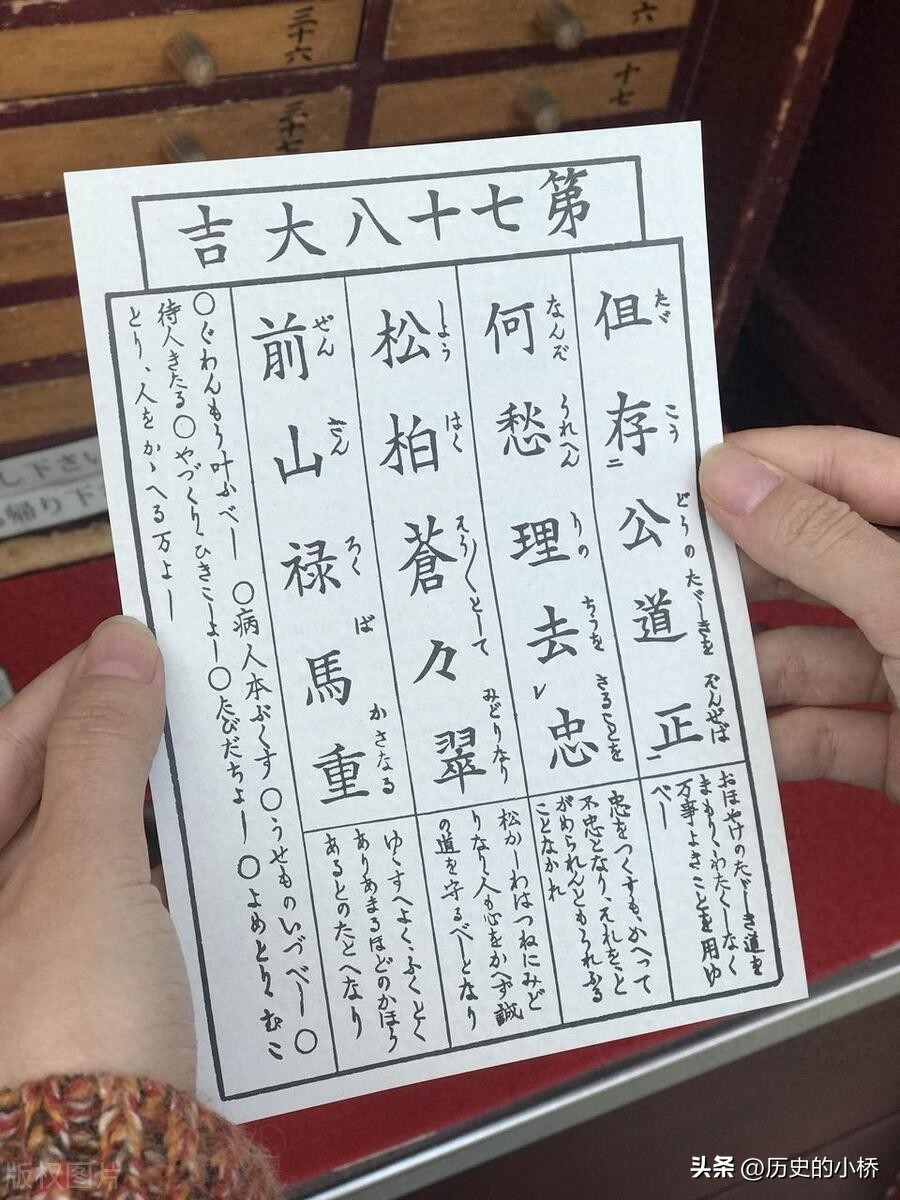 三十六
三十七
六
十七
し下さい
帰り下さ
第七十八大吉
但存二公道正一
たゞ こう どうの たゞしきを ぞんぜば
何愁理去レ忠
なんぞ うれへん りの ちうを さることを
松柏蒼々翠
しよう はく そう／＼として みどりなり
前山禄馬重
ぜん さん ろく ば かさなる
おほやけのたゞしき道を
まもり、わたくしなく
万事よきことを用ゆ
べし
忠をつくすも、かへって
不忠となり、それをと
がめられんともうれふる
ことなかれ
松かしわはつねにみど
りなり人も心をかへず誠
の道を守るべしとなり
ゆくすへよく、ふくとく
ありあまるほどのかほう
あるとのたとへなり
〇ぐわんもう叶ふべし 〇病人本ぶくす 〇うせものいづべし 〇
待人きたる 〇やづくり、ひきこしよし 〇たびだちよし 〇よめとり、むこ
とり、人をかゝへる万よし
版权图片
头条 @历史的小桥